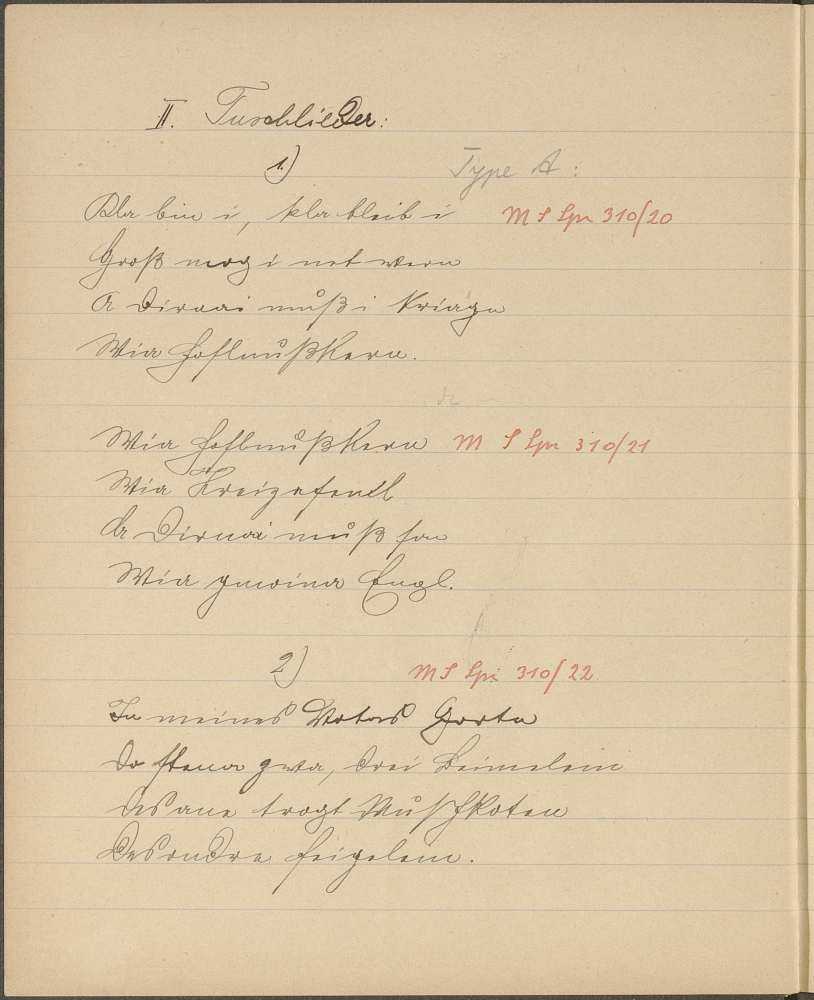 II. Tuschlieder:
1) Type A:
Kla bin i, kla bleib i M S Lpr 310/20
Groß mog i net wern
A Dirnai muß i kriagn
Wia Hoslnußkern.
Wia Hoslnußkern M S Lpr 310/21
Wia Kreizafendl
A Dirnai muß san
Wia gmoina Engl.
2) M S Lpr 310/22
In meines Votas Gorta
Do stena zwa, drei Beimelein
Des ane trogt Mußkoten
Des ondre Feigelein.